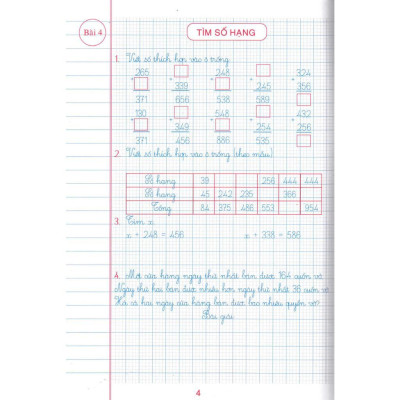 Bài 4
TÌM SỐ HẠNG
1. Viết số thích hợp vào ô trống
265 + □ = 371
□ + 339 = 656
248 + □ = 538
□ + 245 = 589
324 + 356 = □
130 + □ = 371
□ + 349 = 456
548 + □ = 886
□ + 254 = 535
432 + 256 = □
2. Viết số thích hợp vào ô trống (theo mẫu)
Số hạng 39 256 444 444
Số hạng 45 242 235 366
Tổng 84 375 486 553 954
3. Tìm x
x + 248 = 456 x + 338 = 586
4. Một cửa hàng ngày thứ nhất bán được 164 cuốn vở.
Ngày thứ hai bán được nhiều hơn ngày thứ nhất 36 cuốn vở.
Hỏi cả hai ngày cửa hàng bán được bao nhiêu quyển vở?
Bài giải
4